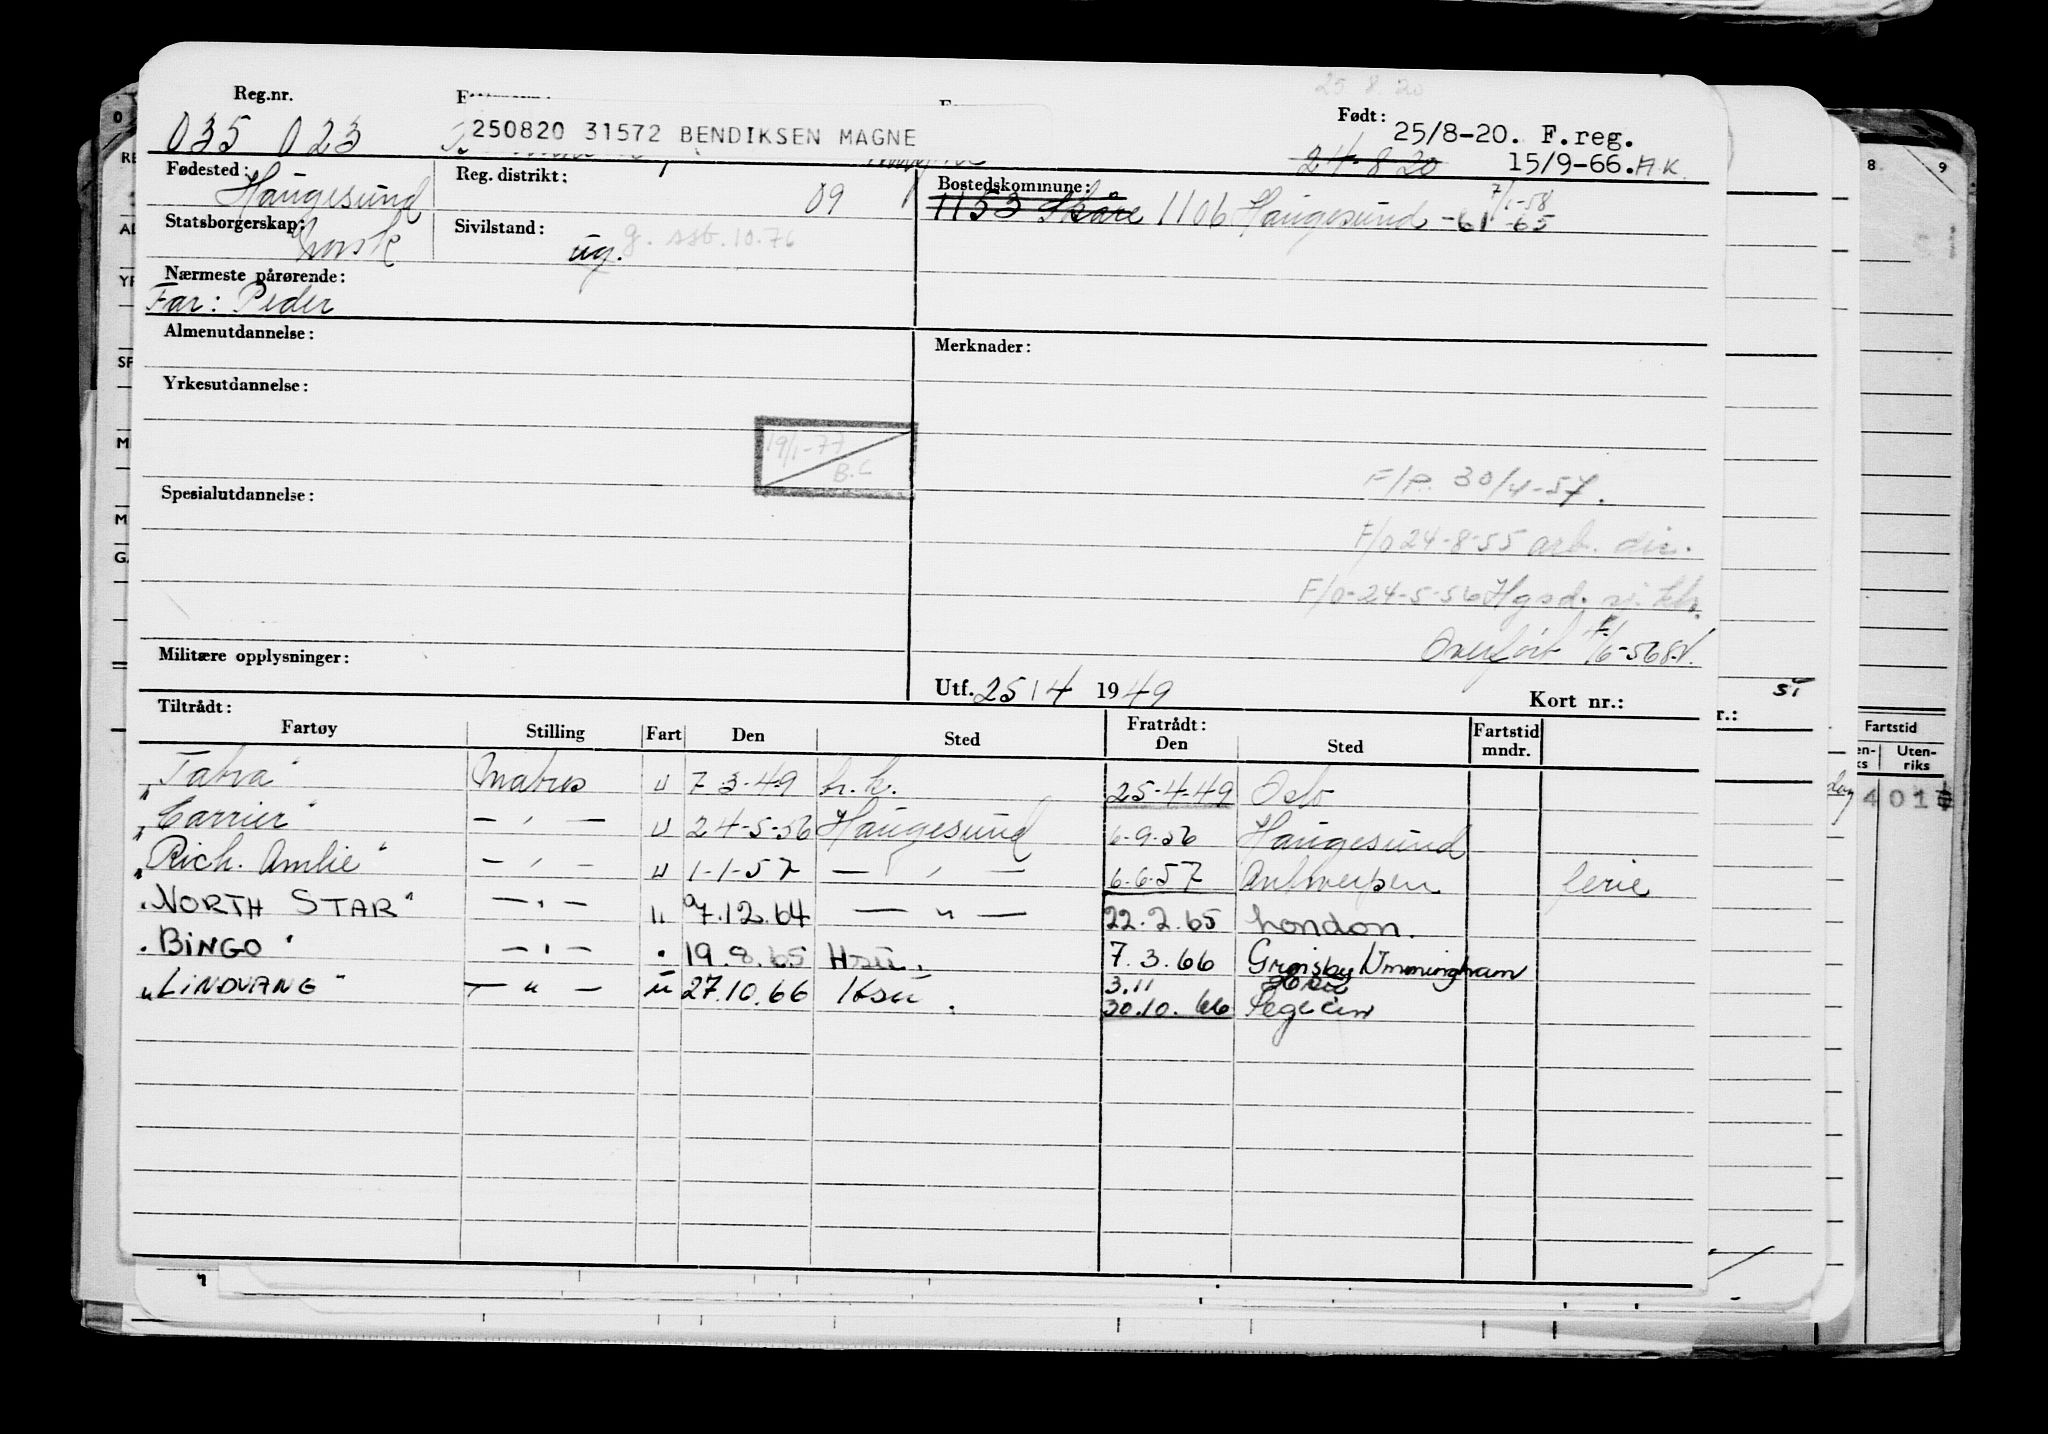 25 8 20
Reg.nr. Født:
035 023 250820 31572 BENDIKSEN MAGNE 25/8-20. F.reg.
24-8-20 15/9-66. A.K.
Fødested: Haugesund Reg. distrikt: 09 Bostedskommune: 7/1-58
1153 Skåre 1106 Haugesund -61 -65
Statsborgerskap: norsk Sivilstand: ug. g. 10.76
Nærmeste pårørende:
Far: Peder
Almenutdannelse: Merknader:
Yrkesutdannelse:
19/1-77
B.C
F/P. 30/4-57.
Spesialutdannelse:
F/o 24-8-55 arb. dir.
F/o-24-5-56 Hgsd.
Overført
Militære opplysninger:
Utf. 25/4 1949 Kort nr.:
Tiltrådt: Fratrådt:
Fartøy Stilling Fart Den Sted Den Sted Fartstid mndr.
"Tabra" Matros u 7 3-49 h.k. 25-4-49 Oslo
"Carrier" — " — u 24-5-56 Haugesund 6-9-56 Haugesund
"Rich. Amlie" — " — u 1-1-57 — " — 6-6-57 Antwerpen ferie
"NORTH STAR" — " — u 7.12.64 — " — 22.2.65 London.
"BINGO" — " — " 19.8.65 Hsu. 7.3.66 Grimsby Immingham
"LINDVANG" — " — u 27.10.66 Hsu. 3.11
30.10.66
Fartstid
Uten-
riks
401